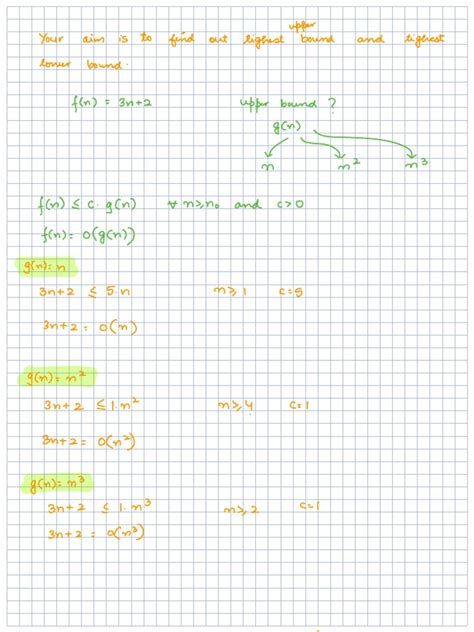 Your aim is to find out tighest upper bound and tighest
lower bound.
f(n) = 3n+2 upper bound ?
g(n)
n n² n³
f(n) ≤ c. g(n) ∀ n≥n₀ and c>0
f(n) = O(g(n))
g(n) = n
3n+2 ≤ 5.n n≥1 c=5
3n+2 = O(n)
g(n) = n²
3n+2 ≤ 1.n² n≥4 c=1
3n+2 = O(n²)
g(n) = n³
3n+2 ≤ 1.n³ n≥2 c=1
3n+2 = O(n³)